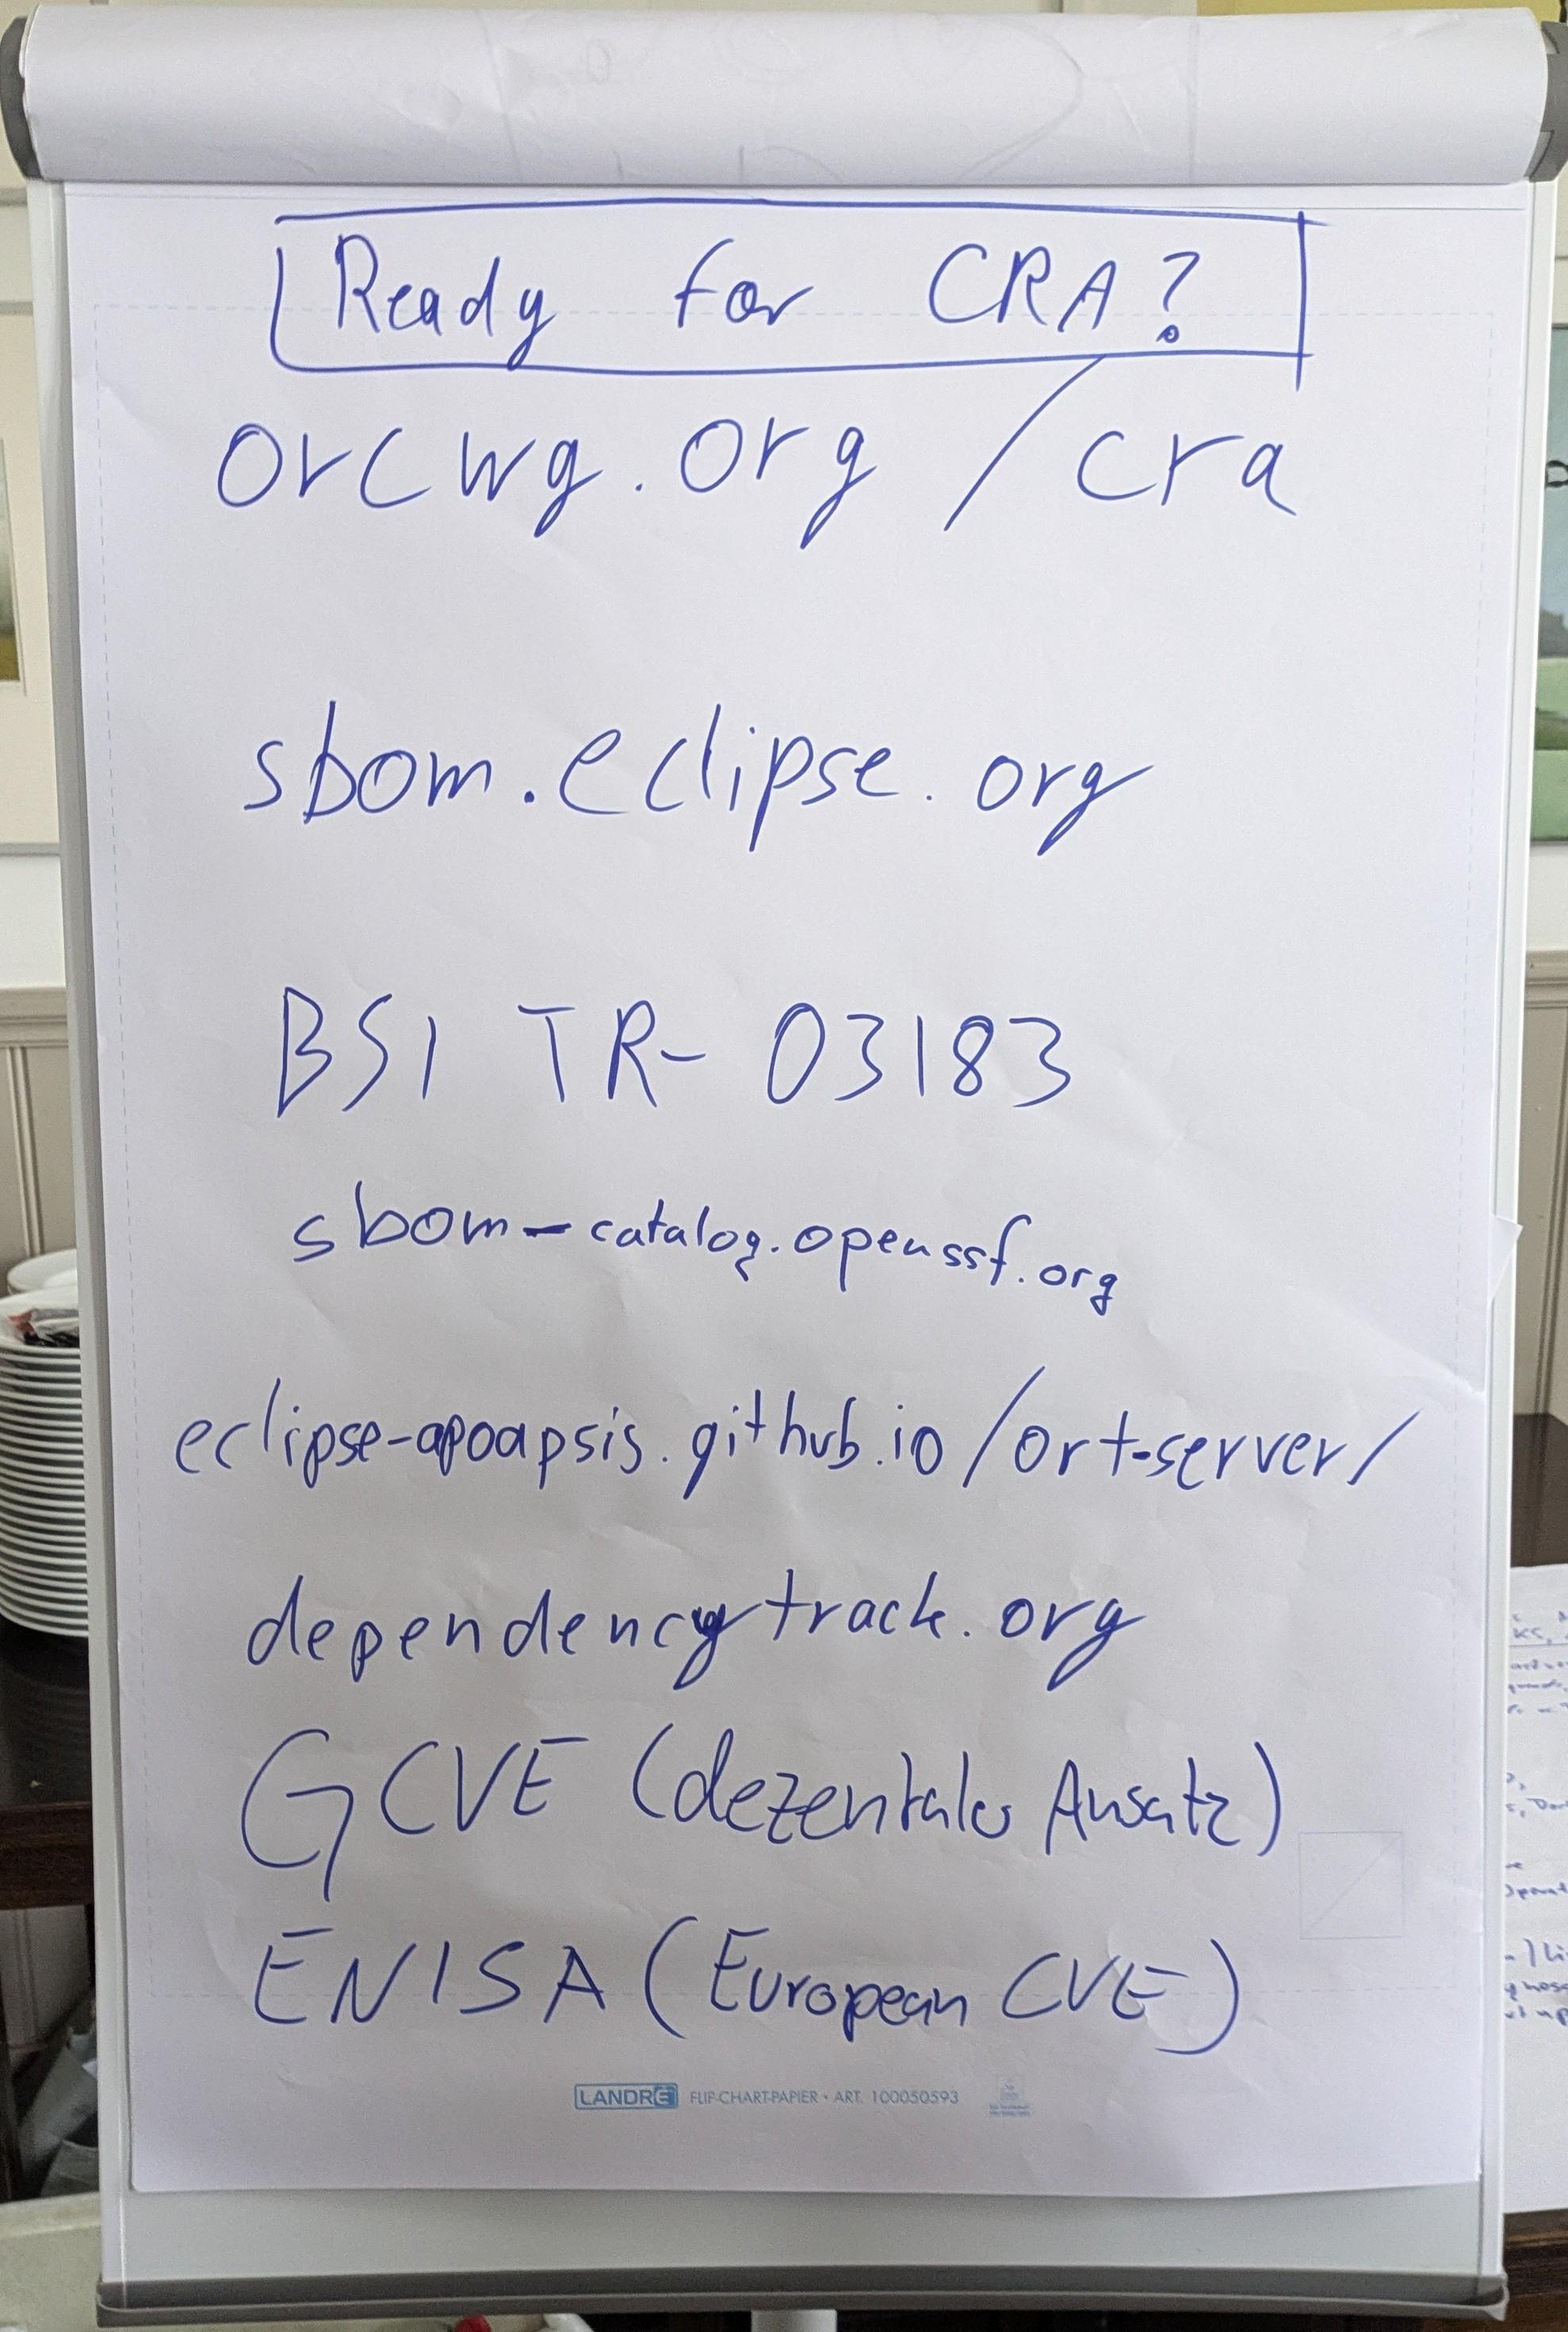 Ready for CRA?
orcwg.org/cra
sbom.eclipse.org
BSI TR-03183
sbom-catalog.openssf.org
eclipse-apoapsis.github.io/ort-server/
dependencytrack.org
GCVE (dezentaler Ansatz)
ENISA (European CVE)
LANDRÉ FLIP-CHART-PAPIER • ART. 100050593